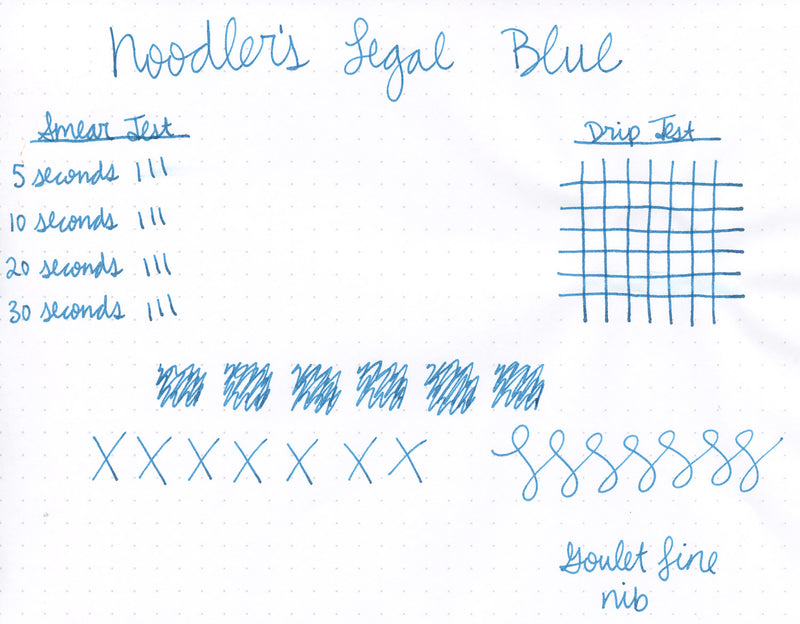 Noodler's Legal Blue
Smear Test
5 seconds |||
10 seconds |||
20 seconds |||
30 seconds |||
Drip Test
X X X X X X X
Goulet fine
nib